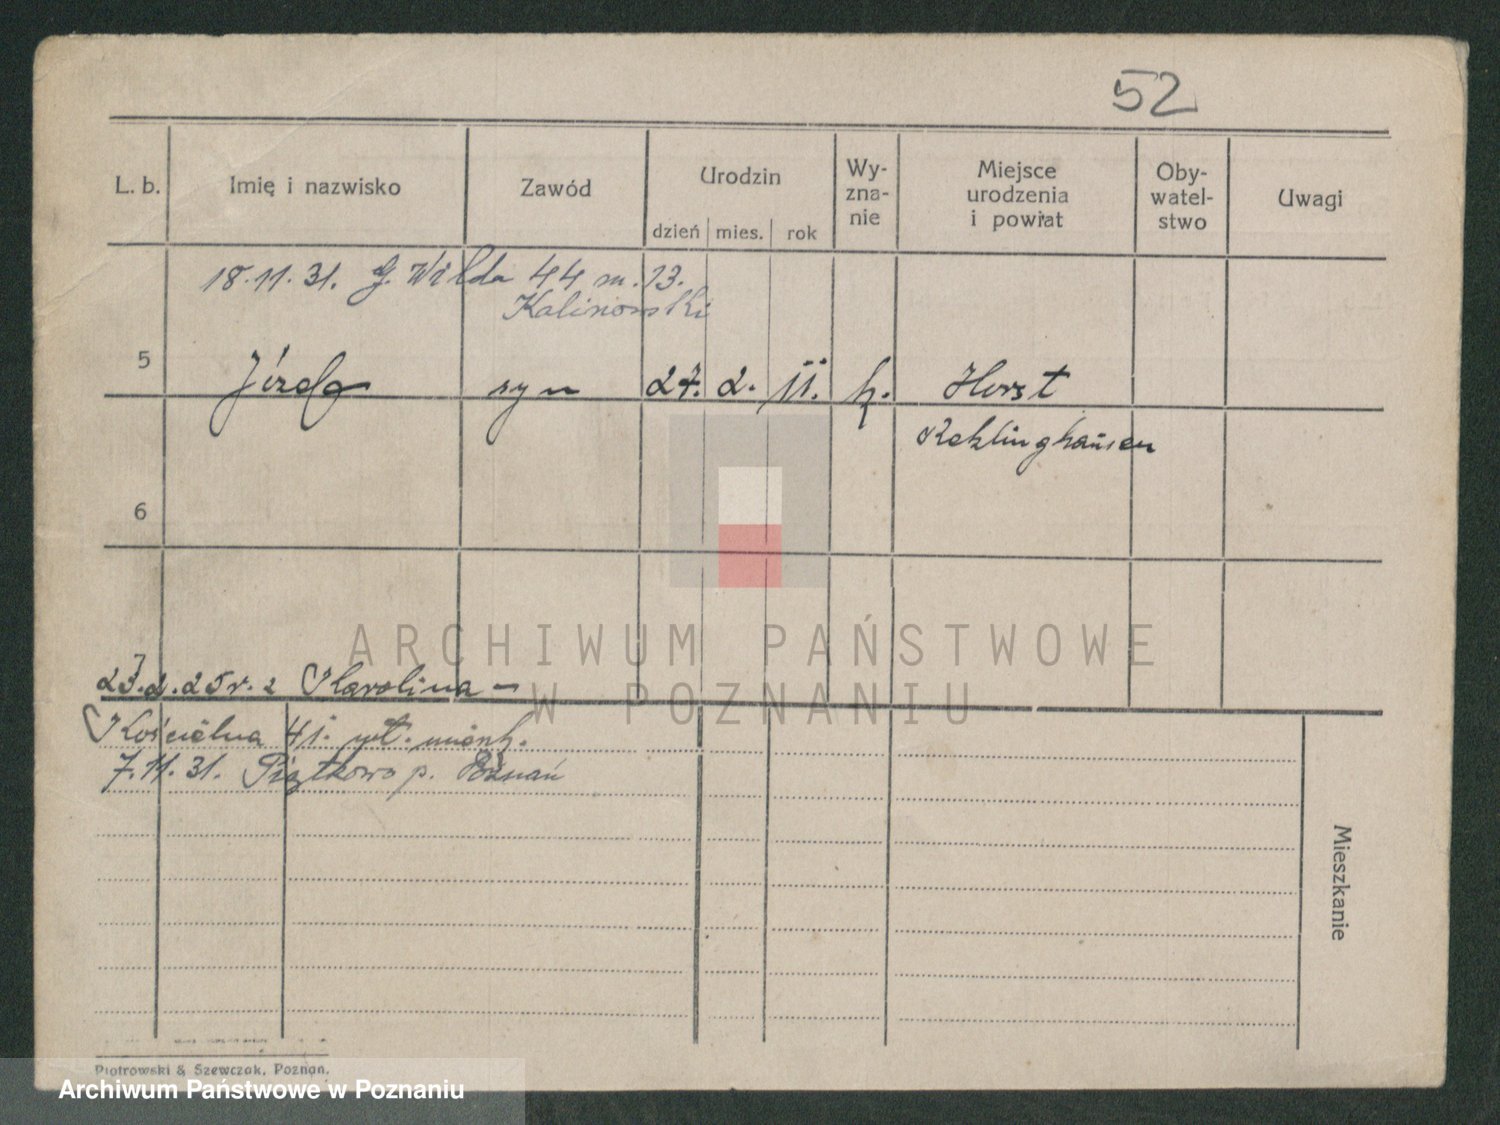 52
L. b. Imię i nazwisko Zawód Urodzin Wy-zna-nie Miejsce urodzenia i powiat Oby-watel-stwo Uwagi
dzień mies. rok
18.11.31. G. Wilda 44 m. 13.
Kalinowski
5 Józef syn 27. 2. 11. k. Horst
Reklinghausen
6
ARCHIWUM PAŃSTWOWE
W POZNANIU
23.2.25r. z Karolina –
Kościelna 41. mieszk.
7.11.31. Piątkowo p. Poznań
Mieszkanie
Piotrowski & Szewczak, Poznań.
Archiwum Państwowe w Poznaniu